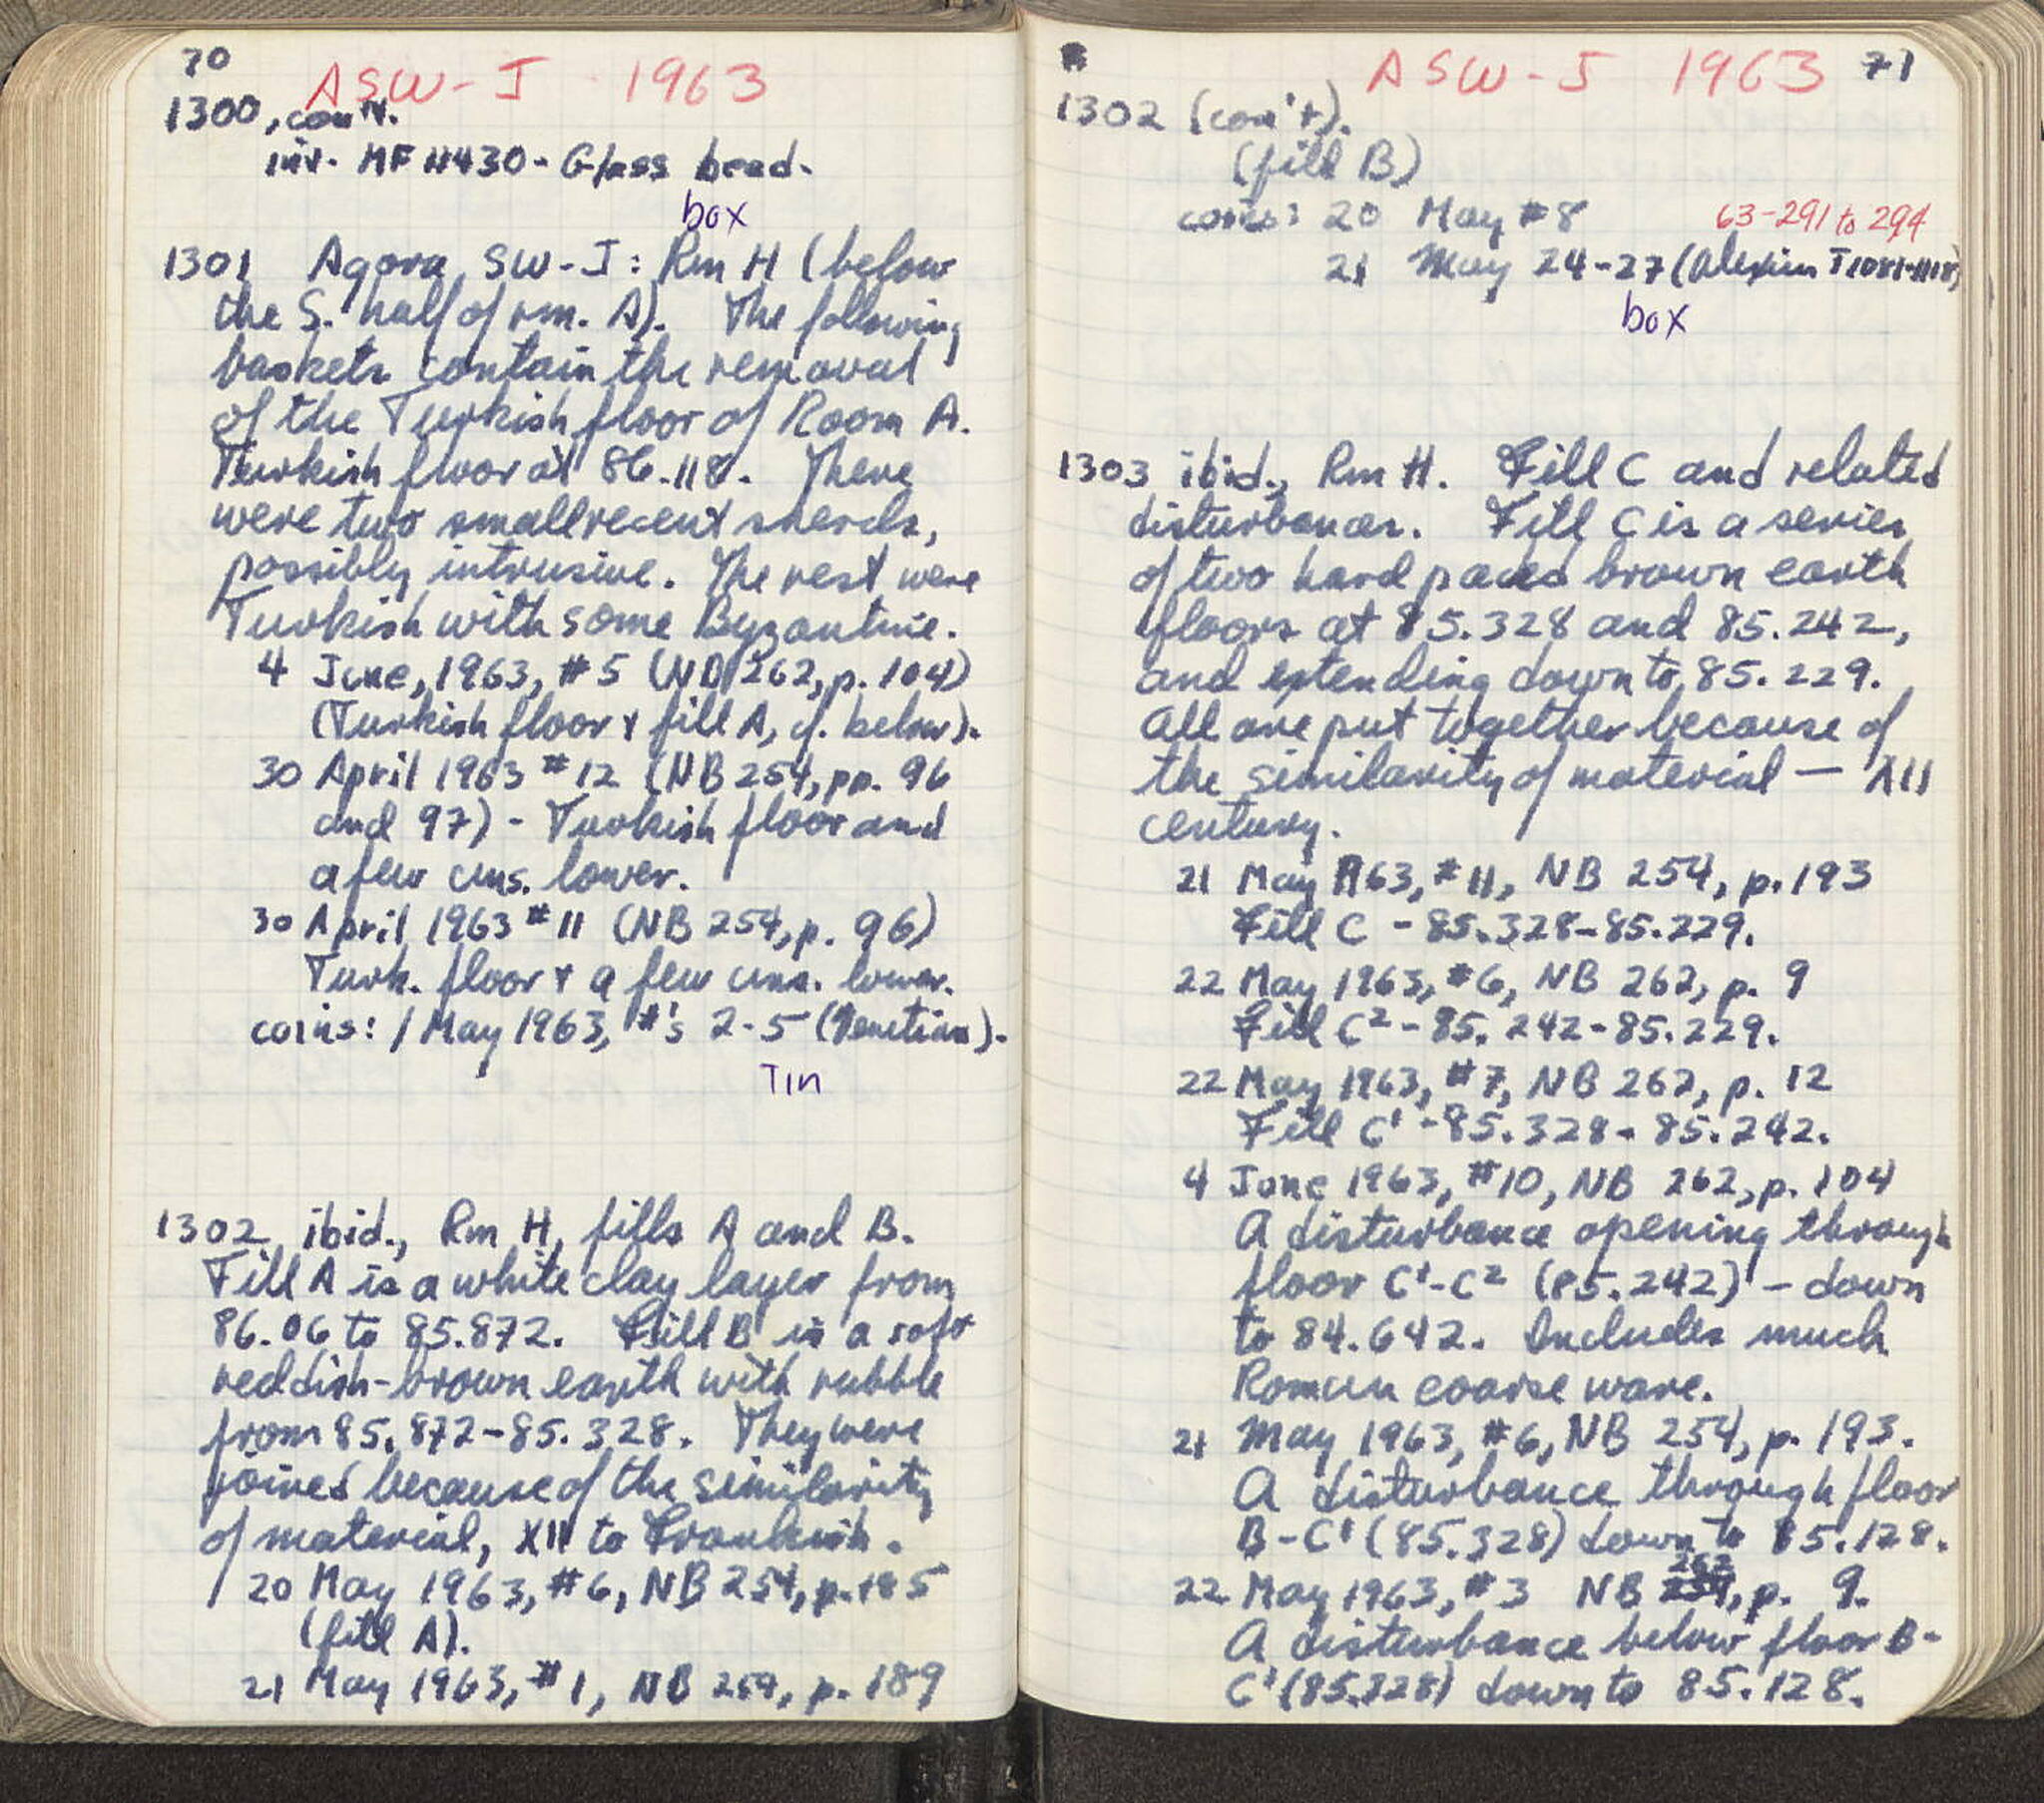 70
ASW-J - 1963
1300, con't.
inv. MF 11430 - Glass bead.
box
1301 Agora, SW-J: Rm H (below
the S. half of rm. A). The following
baskets contain the removal
of the Turkish floor of Room A.
Turkish floor at 86.118. There
were two small recent sherds,
possibly intrusive. The rest were
Turkish with some Byzantine.
4 June, 1963, #5 (NB 262, p. 104)
(Turkish floor + fill A, cf. below).
30 April 1963 #12 (NB 254, pp. 96
and 97) - Turkish floor and
a few cms. lower.
30 April 1963 #11 (NB 254, p. 96)
Turk. floor + a few cms. lower.
coins: 1 May 1963, #'s 2-5 (Venetian).
Tin
1302 ibid., Rm H, fills A and B.
Fill A is a white clay layer from
86.06 to 85.872. Fill B is a soft
reddish-brown earth with rubble
from 85.872-85.328. They were
joined because of the similarity
of material, XII to Frankish.
20 May 1963, #6, NB 254, p. 185
(fill A).
21 May 1963, #1, NB 254, p. 189
ASW-J 1963 71
1302 (con't).
(fill B)
coins: 20 May #8 63-291 to 294
21 May 24-27 (Alexius I 1081-1118)
box
1303 ibid., Rm H. Fill C and related
disturbances. Fill C is a series
of two hard paced brown earth
floors at 85.328 and 85.242,
and extending down to 85.229.
All are put together because of
the similarity of material — XII
century.
21 May 1963, #11, NB 254, p. 193
Fill C - 85.328-85.229.
22 May 1963, #6, NB 262, p. 9
Fill C² - 85.242-85.229.
22 May 1963, #7, NB 262, p. 12
Fill C¹ - 85.328-85.242.
4 June 1963, #10, NB 262, p. 104
A disturbance opening through
floor C¹-C² (85.242) - down
to 84.642. Includes much
Roman coarse ware.
21 May 1963, #6, NB 254, p. 193.
A disturbance through floor
B-C¹ (85.328) down to 85.128.
22 May 1963, #3 NB 262, p. 9.
A disturbance below floor B-
C¹ (85.328) down to 85.128.